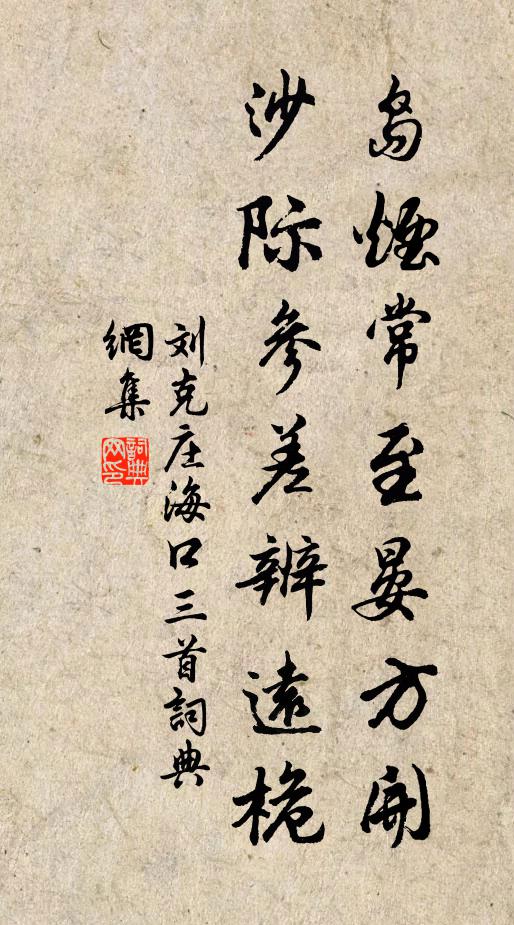 岛煙常至晏方開
沙际參差辨遠桅
刘克庄海口三首詞典
網集
詞典网印